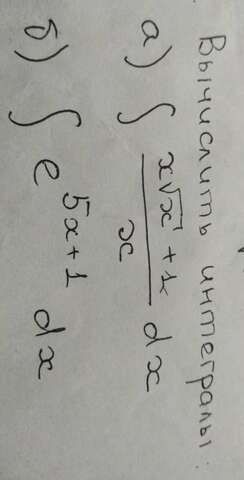 Вычислить интегралы:
а) ∫ (x√x + 1)/x dx
б) ∫ e^(5x+1) dx